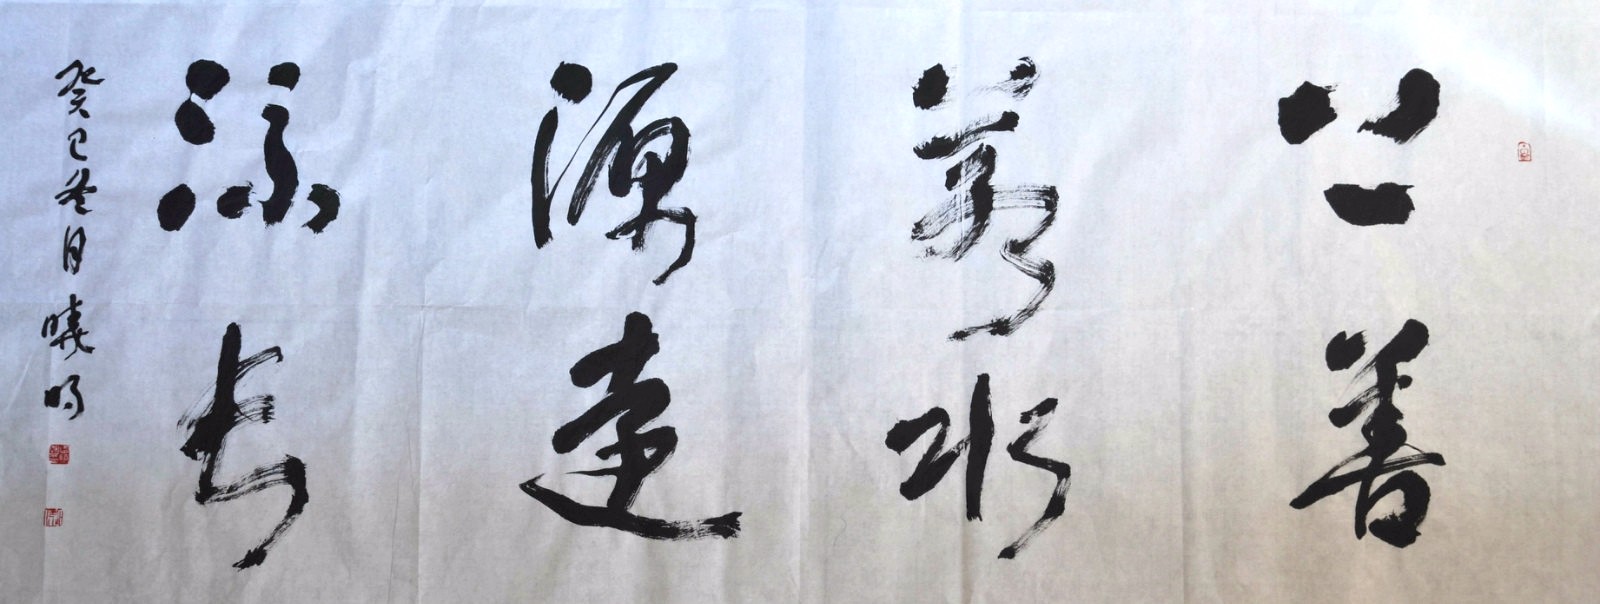 上善
若水
源遠
流長
癸巳冬月曉明